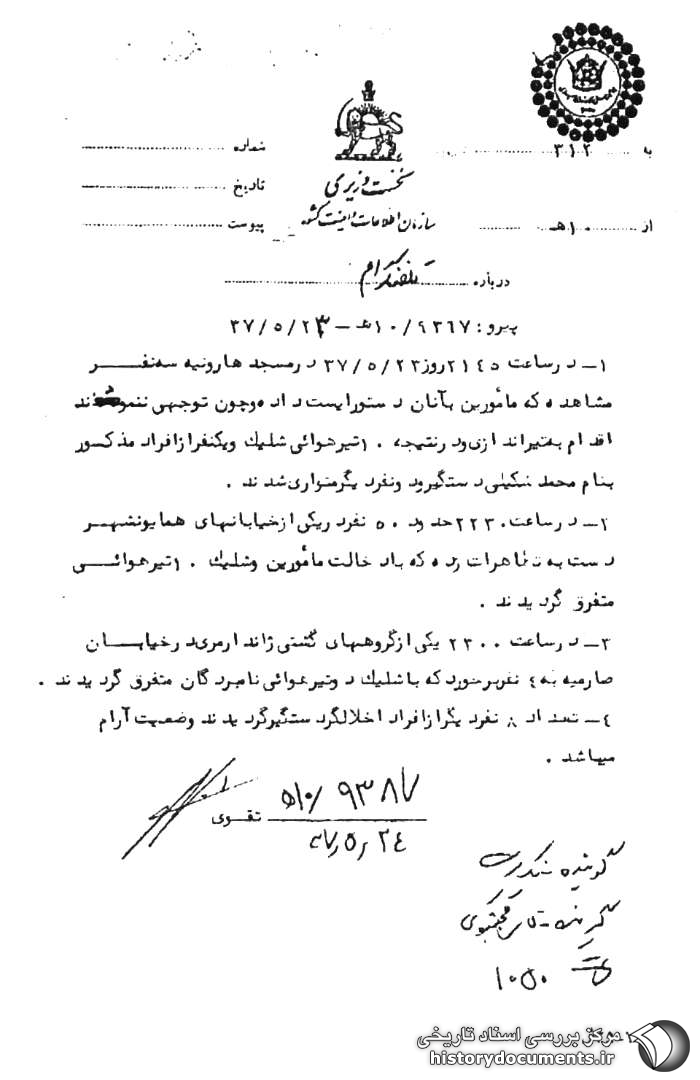 به ۳۱۲
شماره
نخست وزیری
تاریخ
سازمان اطلاعات و امنیت کشور
از ۱۰هـ
پیوست
درباره تلفنگرام
پیرو : ۱۰/۹۳۶۷هـ – ۳۷/۵/۲۳
۱– در ساعت ۲۱۴۵ روز ۳۷/۵/۲۳ در مسجد هارونیه سه نفر
مشاهده که مأمورین بآنان دستور ایست داده و چون توجهی ننمودند
اقدام به تیراندازی و در نتیجه ۱۰ تیر هوائی شلیك و یکنفر از افراد مذکور
بنام محمد شکیلی دستگیر و دو نفر دیگر متواری شدند .
۲– در ساعت ۲۲۳۰ حدود ۵۰ نفر در یکی از خیابانهای همایونشهر
دست به تظاهرات زده که با دخالت مأمورین و شلیك ۱۰ تیر هوائی
متفرق گردیدند .
۳– در ساعت ۲۳۰۰ یکی از گروههای گشتی ژاندارمری در خیابان
صارمیه به ٤ نفر برخورد که با شلیك دو تیر هوائی نامبردگان متفرق گردیدند .
٤– تعداد ۸ نفر دیگر از افراد اخلالگر دستگیر گردیدند وضعیت آرام
میباشد .
۹۳۸۷/۱۰هـ
تقوی
۳۷/۵/۲٤
گوینده
گیرنده –
مرکز بررسی اسناد تاریخی
historydocuments.ir